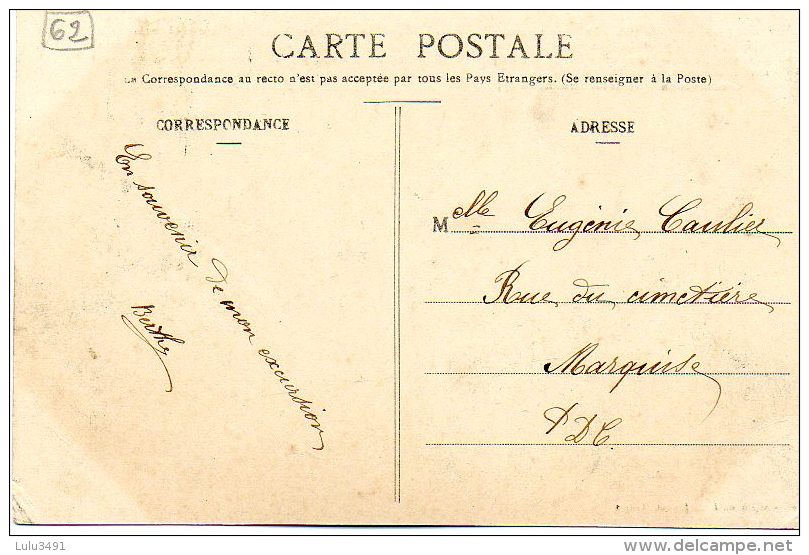 62
CARTE POSTALE
La Correspondance au recto n'est pas acceptée par tous les Pays Etrangers. (Se renseigner à la Poste)
CORRESPONDANCE
ADRESSE
En souvenir de mon excursion
Berthe
Melle Eugénie Caulier
Rue du cimetière
Marquise
PDC
Lulu3491
www.delcampe.net